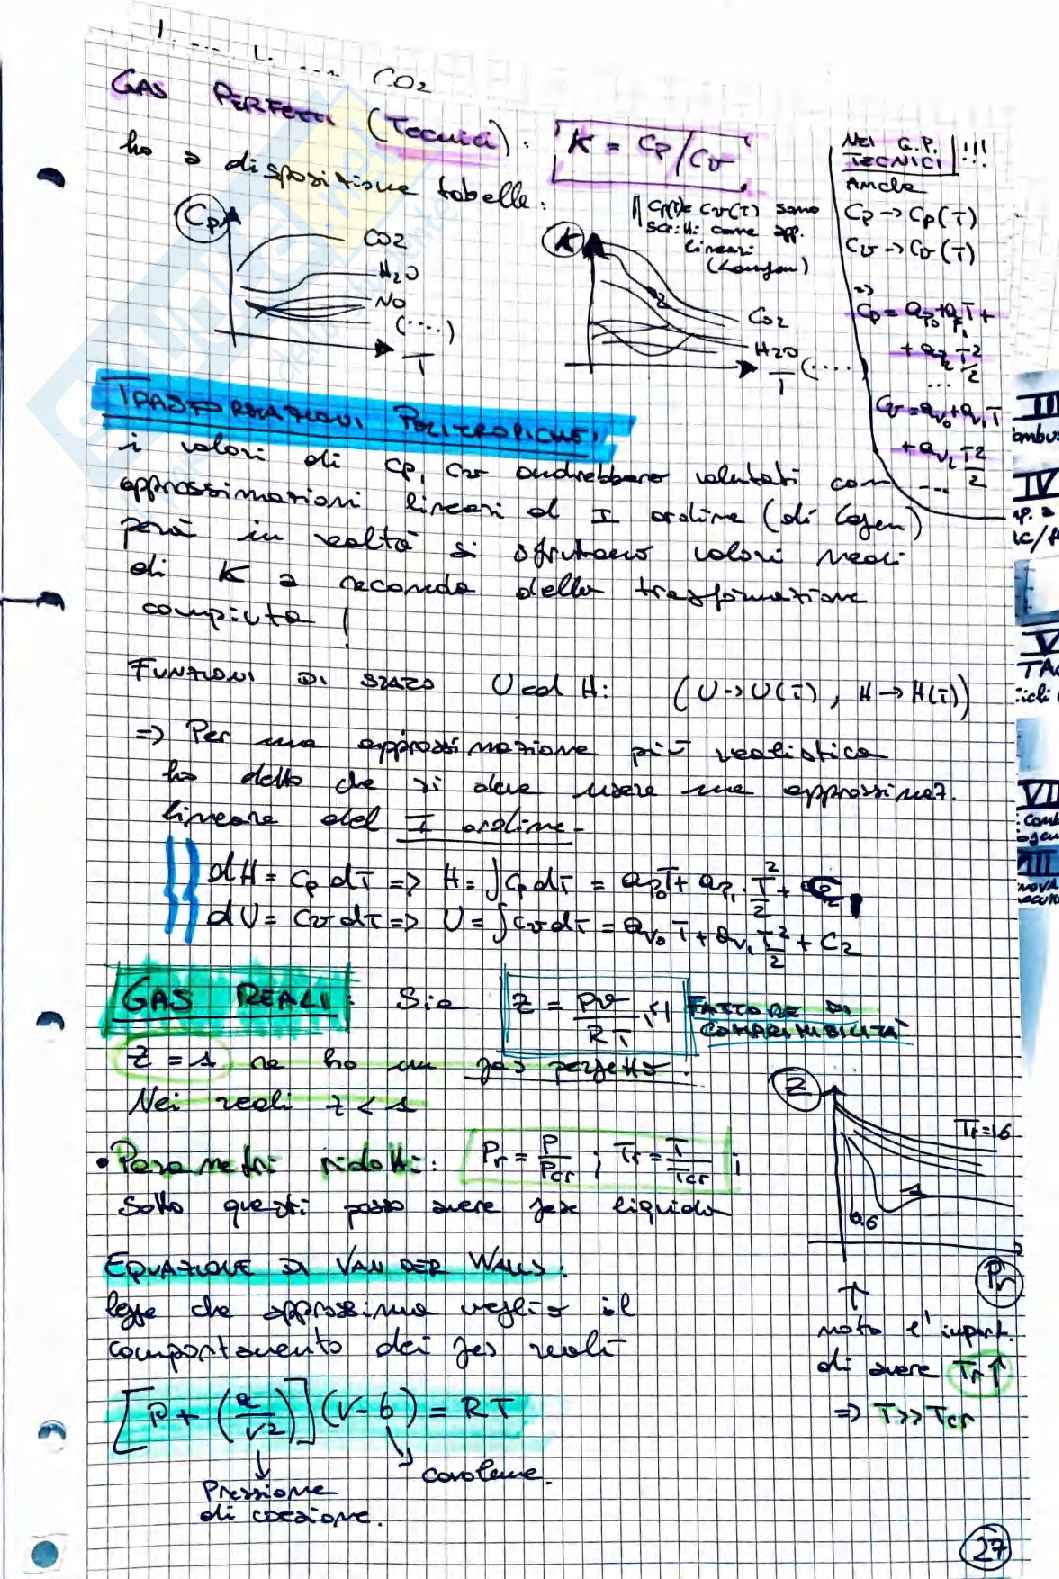 CO2
GAS PERFETTI (Tecnici):
K = Cp/Cv
ho a disposizione tabelle:
Cp
CO2
H2O
NO
(....)
T
K
CO2
H2O
T (....
Cp(T) e Cv(T) sono
scritti come app.
lineari
(Langen)
NEI G.P. !!!
TECNICI
Anche
Cp → Cp(T)
Cv → Cv(T)
=>
Cp = ap0 + ap1 T +
+ ap2 T²/2
...
Cv = av0 + av1 T
+ av2 T²/2
...
TRASFORMAZIONI POLITROPICHE:
i valori di cp, cv andrebbero valutati con
approssimazioni lineari di I ordine (di Lagen)
però in realtà si sfruttano valori medi
di K a seconda della trasformazione
compiuta !
FUNZIONI DI STATO U ed H: (U → U(T), H → H(T))
=> Per una approssimazione più realistica
ho detto che si deve usare una approssimaz.
lineare del I ordine.
dH = cp dT => H = ∫cp dT = ap0 T + ap1 T²/2 +
dU = cv dT => U = ∫cv dT = av0 T + av1 T²/2 + C2
GAS REALI: Sia Z = pv/RT ≤1 FATTORE DI
COMPRIMIBILITÀ
Z = 1 se ho un gas perfetto.
Nei reali z < 1
• Parametri ridotti: Pr = P/Pcr ; Tr = T/Tcr ;
Sotto questi posso avere fase liquida
Z
Tr = 1,6
0,6
Pr
↑
noto l'import.
di avere Tr↑
=> T>>Tcr
EQUAZIONE DI VAN DER WALLS:
legge che approssima meglio il
comportamento dei gas reali
[P + (a/v²)](v-b) = RT
Pressione
di coesione.
covolume.
27
III
ombus
IV
V
TA
cicli
VII
comb
VIII